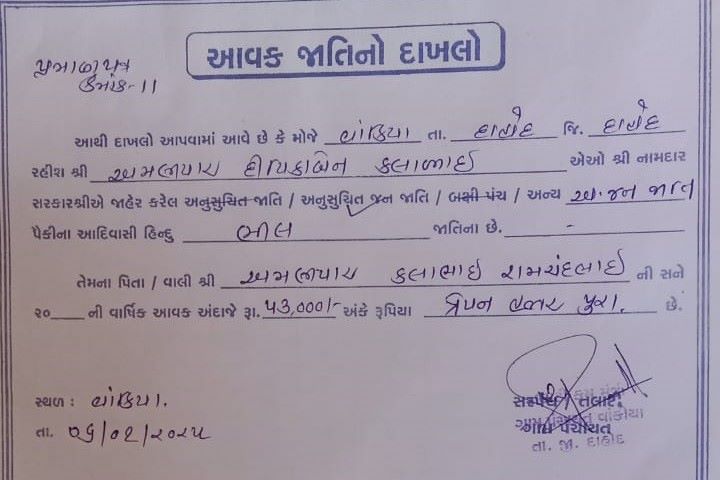 આવક જાતિનો દાખલો
પ્રમાણપત્ર
ક્રમાંક- 11
આથી દાખલો આપવામાં આવે છે કે મોજે વાંકિયા તા. દાહોદ જિ. દાહોદ
રહીશ શ્રી અમલીયાર દીપિકાબેન કલાભાઈ એઓ શ્રી નામદાર
સરકારશ્રીએ જાહેર કરેલ અનુસુચિત જાતિ / અનુસુચિત જન જાતિ / બક્ષી પંચ / અન્ય અ.જન જાતિ
પૈકીના આદિવાસી હિન્દુ ભીલ જાતિના છે. -
તેમના પિતા / વાલી શ્રી અમલીયાર કલાભાઈ રામચંદભાઈ ની સને
૨૦____ ની વાર્ષિક આવક અંદાજે રૂા. ૫૩,૦૦૦/- અંકે રૂપિયા ત્રેપન હજાર પુરા. છે.
સ્થળ : વાંકિયા.
તા. ૦૬/૦૨/૨૦૨૫
સરપંચ / તલાટી
ગ્રામ પંચાયત વાંકીયા
ગ્રામ પંચાયત
તા. જી. દાહોદ